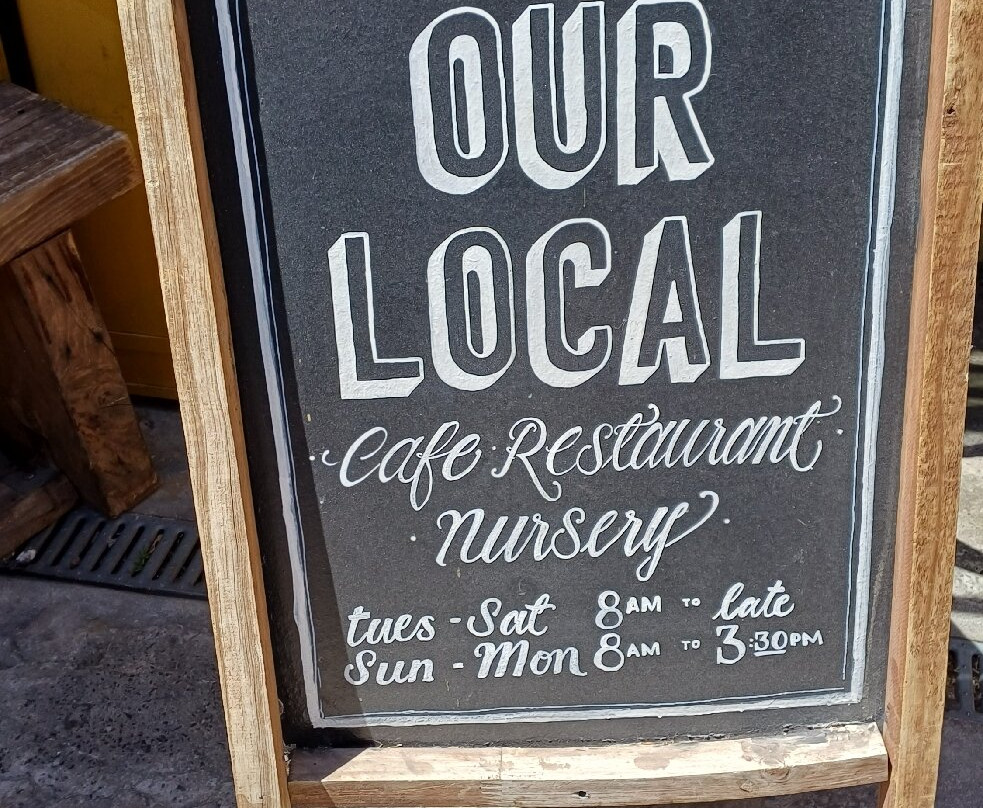 OUR
LOCAL
Cafe Restaurant
nursery
tues - Sat 8AM TO late
Sun - Mon 8AM TO 3:30PM